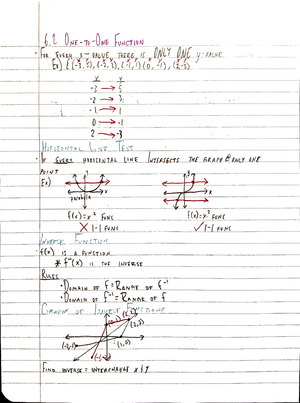 6.2 ONE-TO-ONE FUNCTION
• FOR EVERY X-VALUE, THERE IS ONLY ONE y-VALUE
x y
-3 → 5
-2 → 3
-1 → 1
0 → -1
2 → -3
HORIZONTAL LINE TEST
IF EVERY HORIZONTAL LINE INTERSECTS THE GRAPH @ ONLY ONE
POINT
Ex)
y
x
y
x
parabola
f(x)=x² FUNC
f(x)=x³ FUNC
X 1-1 FUNC
✓ 1-1 FUNC
INVERSE FUNCTION
f(x) IS A FUNCTION
* f⁻¹(x) IS THE INVERSE
RULES
• DOMAIN OF f = RANGE OF f⁻¹
• DOMAIN OF f⁻¹ = RANGE OF f
GRAPHS OF INVERSE FUNCTIONS
(1,0)
FIND INVERSE = INTERCHANGE x & y